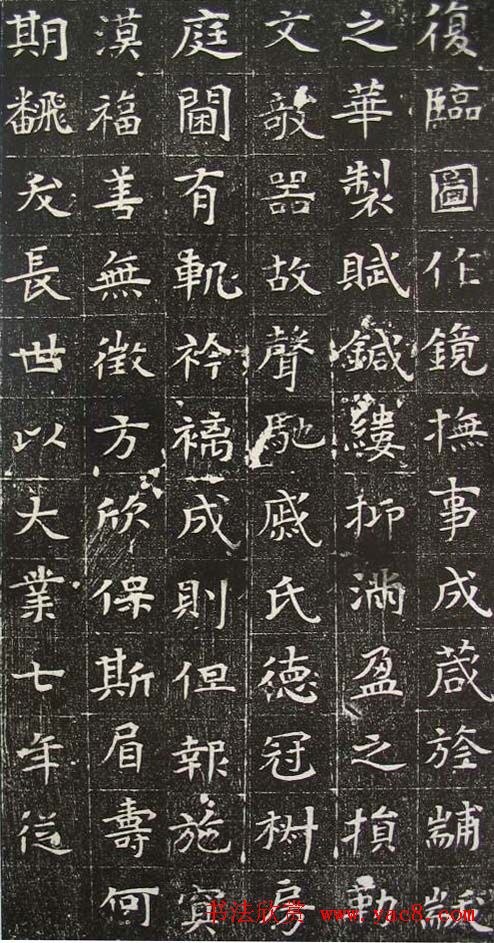 復臨圖作鏡撫事成葴旍黼黻
之華製賦鍼縷抑滿盈之損動
文欹器故聲馳戚氏德冠樹房
庭閫有軌衿褵成則但報施冥
漠福善無徵方欣保斯眉壽何
期飜夭長世以大業七年從
书法欣赏 www.yac8.com